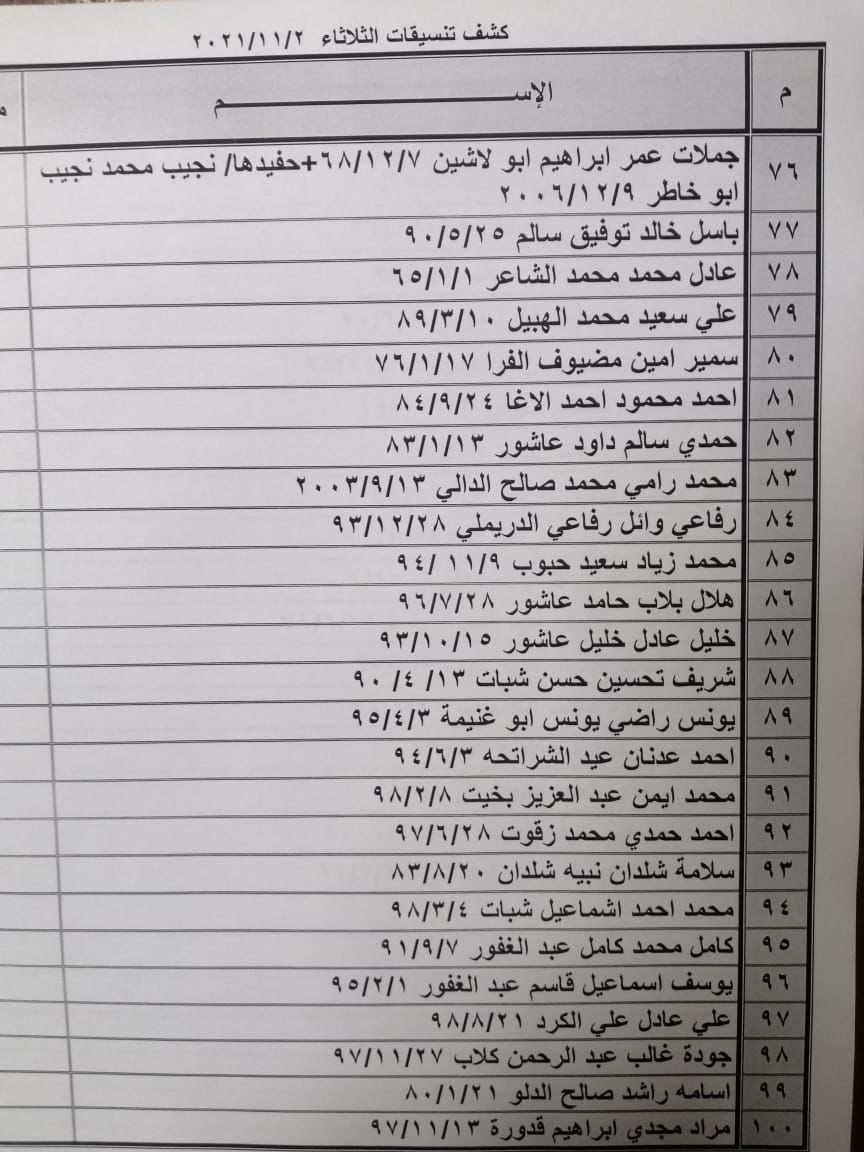 كشف تنسيقات الثلاثاء ٢٠٢١/١١/٢
م الإســــــــم
٧٦ جملات عمر ابراهيم ابو لاشين ٦٨/١٢/٧+حفيدها/ نجيب محمد نجيب
ابو خاطر ٢٠٠٦/١٢/٩
٧٧ باسل خالد توفيق سالم ٩٠/٥/٢٥
٧٨ عادل محمد محمد الشاعر ٦٥/١/١
٧٩ علي سعيد محمد الهبيل ٨٩/٣/١٠
٨٠ سمير امين مضيوف الفرا ٧٦/١/١٧
٨١ احمد محمود احمد الاغا ٨٤/٩/٢٤
٨٢ حمدي سالم داود عاشور ٨٣/١/١٣
٨٣ محمد رامي محمد صالح الدالي ٢٠٠٣/٩/١٣
٨٤ رفاعي وائل رفاعي الدريملي ٩٣/١٢/٢٨
٨٥ محمد زياد سعيد حبوب ١١/٩ /٩٤
٨٦ هلال بلاب حامد عاشور ٩٦/٧/٢٨
٨٧ خليل عادل خليل عاشور ٩٣/١٠/١٥
٨٨ شريف تحسين حسن شبات ١٣/ ٤/ ٩٠
٨٩ يونس راضي يونس ابو غنيمة ٩٥/٤/٣
٩٠ احمد عدنان عيد الشراتحه ٩٤/٦/٣
٩١ محمد ايمن عبد العزيز بخيت ٩٨/٢/٨
٩٢ احمد حمدي محمد زقوت ٩٧/٦/٢٨
٩٣ سلامة شلدان نبيه شلدان ٨٣/٨/٢٠
٩٤ محمد احمد اشماعيل شبات ٩٨/٣/٤
٩٥ كامل محمد كامل عبد الغفور ٩١/٩/٧
٩٦ يوسف اسماعيل قاسم عبد الغفور ٩٥/٢/١
٩٧ علي عادل علي الكرد ٩٨/٨/٢١
٩٨ جودة غالب عبد الرحمن كلاب ٩٧/١١/٢٧
٩٩ اسامه راشد صالح الدلو ٨٠/١/٢١
١٠٠ مراد مجدي ابراهيم قدورة ٩٧/١١/١٣